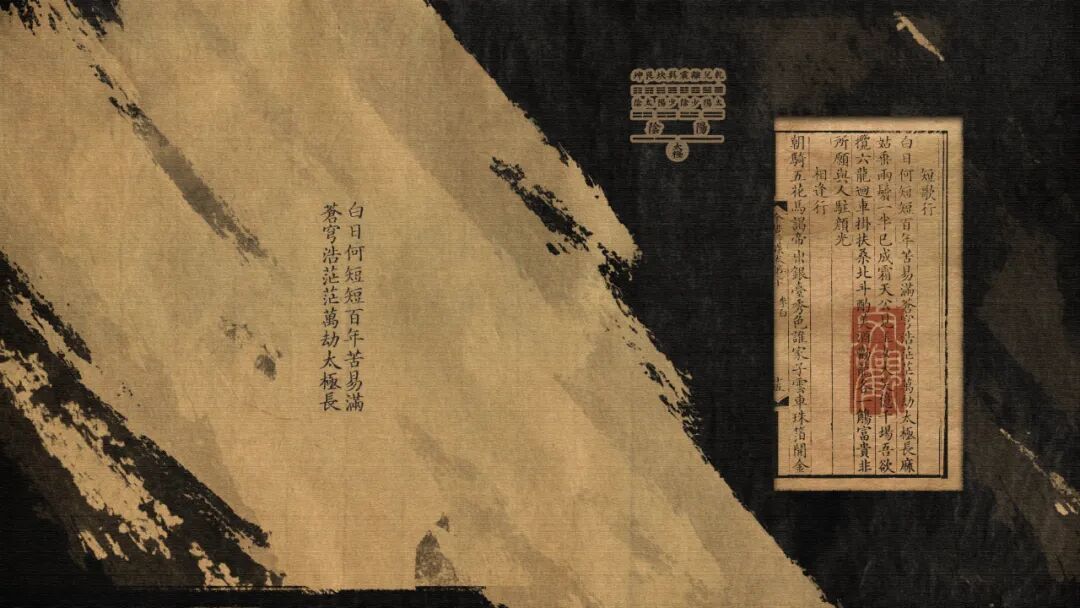 白日何短短百年苦易滿
蒼穹浩茫茫萬劫太極長
乾兌離震巽坎艮坤
太陽少陰少陽太陰
陽 陰
太極
短歌行
白日何短短百年苦易滿蒼穹浩茫茫萬劫太極長麻
姑垂兩鬢一半已成霜天公見女大億千場吾欲
攬六龍迴車掛扶桑北斗酌美酒勸龍各一觴富貴非
所願與人駐顏光
相逢行
朝騎五花馬謁帝出銀臺秀色誰家子雲車珠箔開金
李白